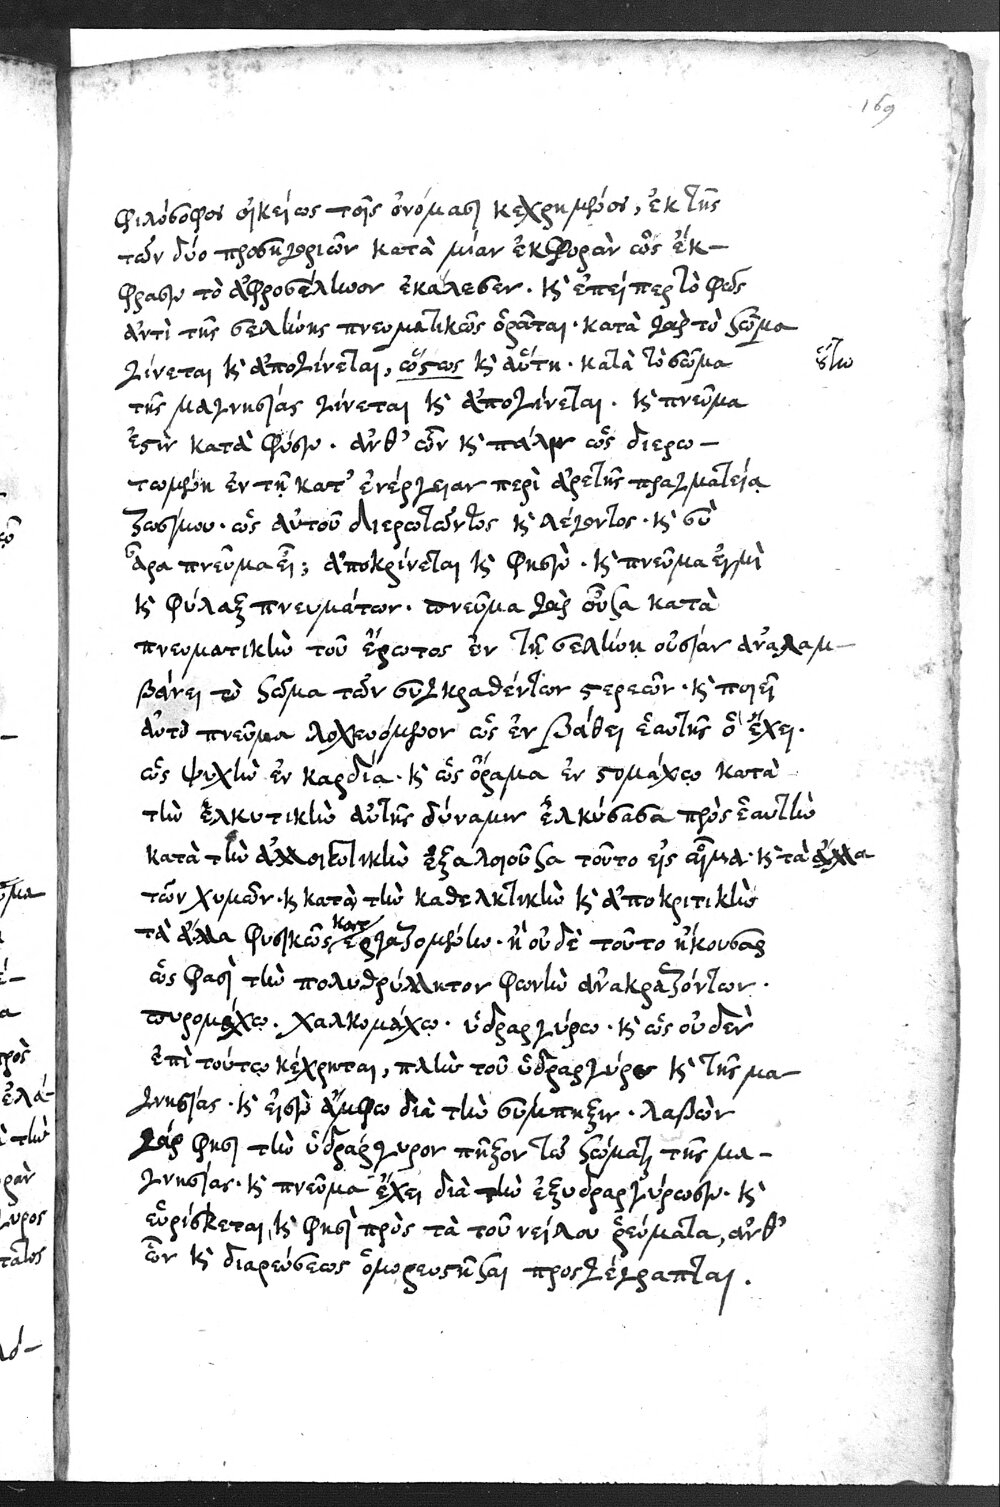 169
φιλόσοφοι οἰκείως τοῖς ὀνόμασι κεχρημένοι, ἐκ τῆς
τῶν δύο προσηγοριῶν κατὰ μίαν ἐκφορὰν ὡς ἐκ-
φρασιν τὸ ἀφροσέληνον ἐκάλεσεν. καὶ ἐπείπερ τὸ φῶς
ἀντὶ τῆς σελήνης πνευματικῶς ὁρᾶται. κατὰ γὰρ τὸ σῶμα
γίνεται καὶ ἀπογίνεται, οὕτως καὶ αὕτη. κατὰ τὸ σῶμα
οὕτω
τῆς μαγνησίας γίνεται καὶ ἀπογίνεται. καὶ πνεῦμα
ἐστὶν κατὰ φύσιν. ἀνθ' ὧν καὶ πάλιν ὡς διερω-
τωμένη ἐν τῇ κατ' ἐνέργειαν περὶ ἀρετῆς πραγματείᾳ
ζωσίμου. ὡς αὐτοῦ διερωτῶντος καὶ λέγοντος. καὶ σὺ
ἆρα πνεῦμα εἶ; ἀποκρίνεται καὶ φησὶν. καὶ πνεῦμα εἰμὶ
καὶ φύλαξ πνευμάτων. πνεῦμα γὰρ οὖσα κατὰ
πνευματικὴν τοῦ ἔρωτος ἐν τῇ σελήνῃ οὐσίαν ἀναλαμ-
βάνει τὸ σῶμα τῶν συγκραθέντων στερεῶν. καὶ ποιεῖ
αὐτὸ πνεῦμα λοχευόμενον ὡς ἐν βάθει ἑαυτῆς ὃ ἔχει.
ὡς ψυχὴν ἐν καρδίᾳ. καὶ ὡς ὅραμα ἐν στομάχῳ κατὰ
τὴν ἑλκυτικὴν αὐτῆς δύναμιν ἑλκύσασα πρὸς ἑαυτὴν
κατὰ τὴν ἀλλοιωτικὴν ἐξαλοιοῦσα τοῦτο εἰς αἷμα. καὶ τὰ ἄλλα
τῶν χυμῶν. καὶ κατὰ τὴν καθελκτικὴν καὶ ἀποκριτικὴν
τὰ ἄλλα φυσικῶς κατεργαζομένην. ἢ οὐδὲ τοῦτο ἤκουσας
ὥς φασὶ τὴν πολυθρύλλητον φωνὴν ἀνακραζόντων.
πυρομάχῳ. χαλκομάχῳ. ὑδραργύρῳ. καὶ ὡς οὐδὲν
ἐπὶ τούτῳ κέχρηται, πλὴν τοῦ ὑδραργύρου καὶ τῆς μα
γνησίας. καὶ εἰσὶν ἄμφω διὰ τὴν σύμπηξιν. λαβὼν
γάρ φησι τὴν ὑδράργυρον πῆξον τῷ σώματι τῆς μα-
γνησίας. καὶ πνεῦμα ἔχει διὰ τὴν ἐξυδραργύρωσιν. καὶ
εὑρίσκεται, καὶ φησὶ πρὸς τὰ τοῦ νείλου ῥεύματα, ἀνθ'
ὧν καὶ διαρεύσεως ὁμορευστῆσαι προσγέγραπται.